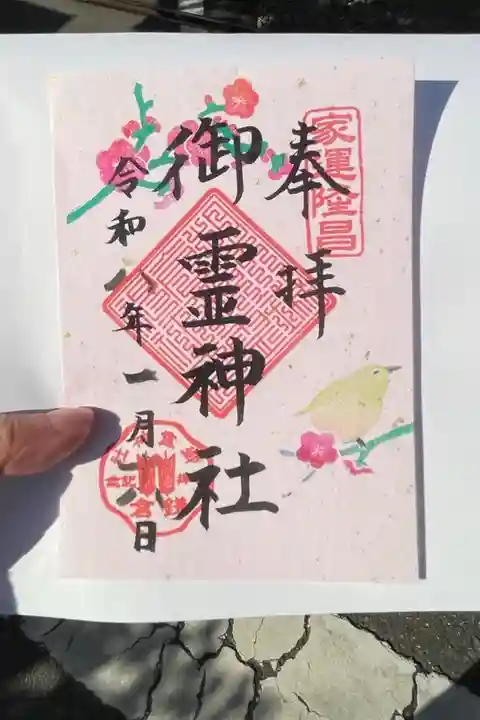 家運隆昌
奉拝
御霊神社
令和八年一月十八日